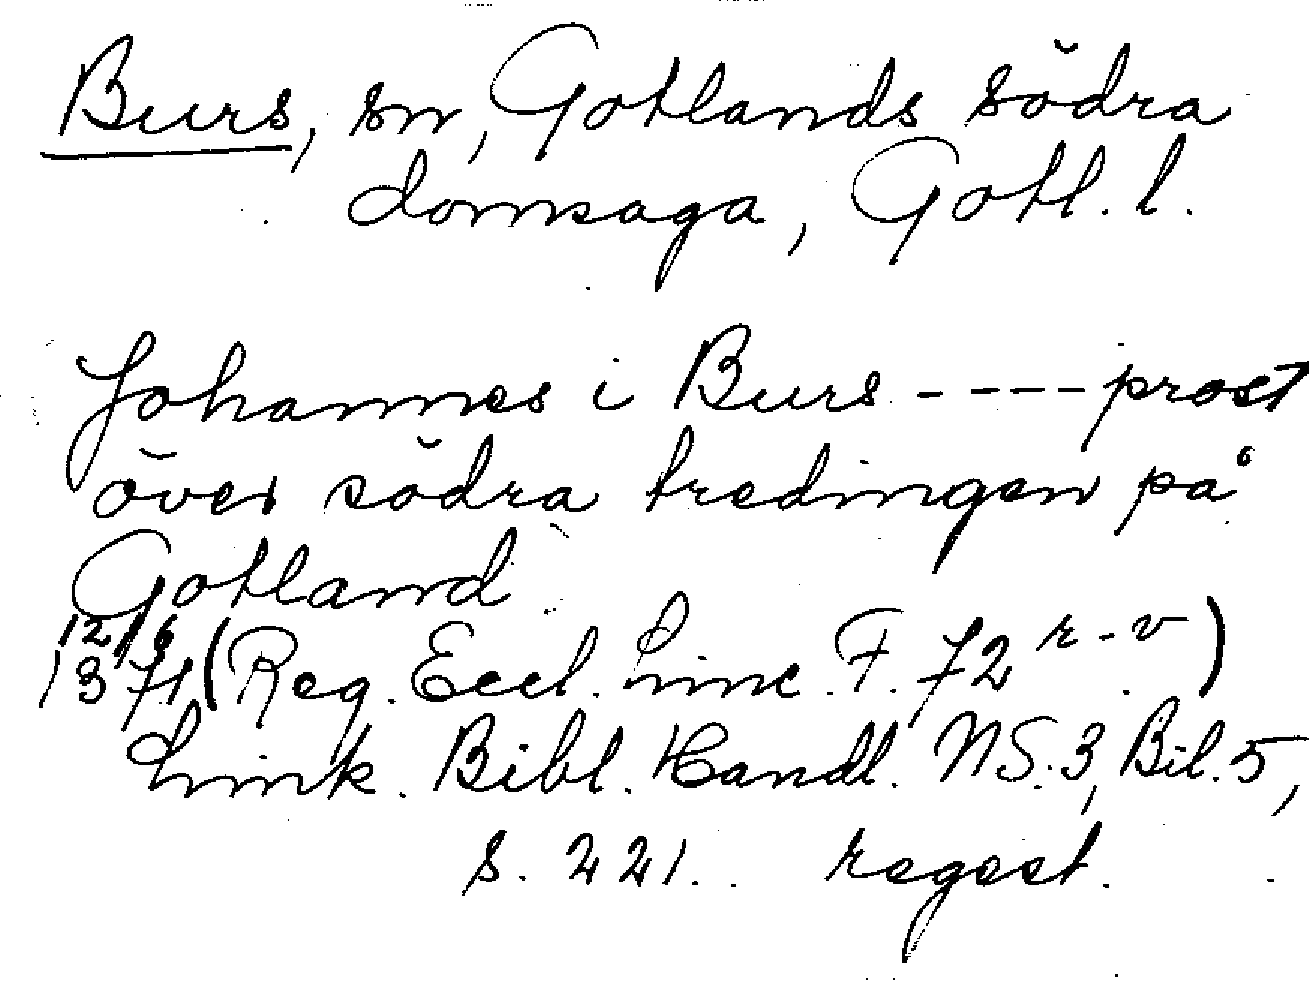 Burs, sn, Gotlands södra
domsaga, Gotl. l.
Johannes i Burs ---- prost
över södra tredingen på
Gotland
12/6
1371 (Reg. Eccl. Linc. F. 72 r-v)
Link. Bibl. Handl. NS. 3, Bil. 5,
s. 221. regest.